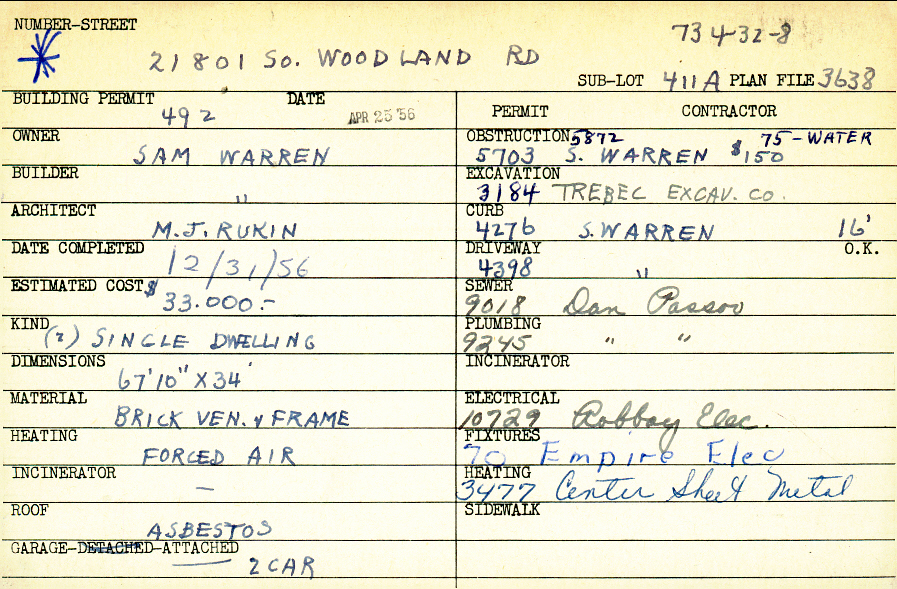 NUMBER-STREET
734-32-8
21801 So. WOODLAND RD
SUB-LOT 411A PLAN FILE 3638
BUILDING PERMIT DATE
492 APR 25 '56
OWNER
SAM WARREN
BUILDER
"
ARCHITECT
M.J. RUKIN
DATE COMPLETED
12/31/56
ESTIMATED COST $
33.000.-
KIND
(2) SINGLE DWELLING
DIMENSIONS
67'10" X 34'
MATERIAL
BRICK VEN. & FRAME
HEATING
FORCED AIR
INCINERATOR
—
ROOF
ASBESTOS
GARAGE-DETACHED-ATTACHED
2 CAR
PERMIT CONTRACTOR
OBSTRUCTION 5872 75-WATER
5703 S. WARREN $150
EXCAVATION
3184 TREBEC EXCAV. CO.
CURB
4276 S. WARREN 16'
DRIVEWAY O.K.
4398 "
SEWER
9018 Dan Passov
PLUMBING
9245 " "
INCINERATOR
ELECTRICAL
10729 Robbay Elec.
FIXTURES
70 Empire Elec
HEATING
3477 Center Sheet Metal
SIDEWALK